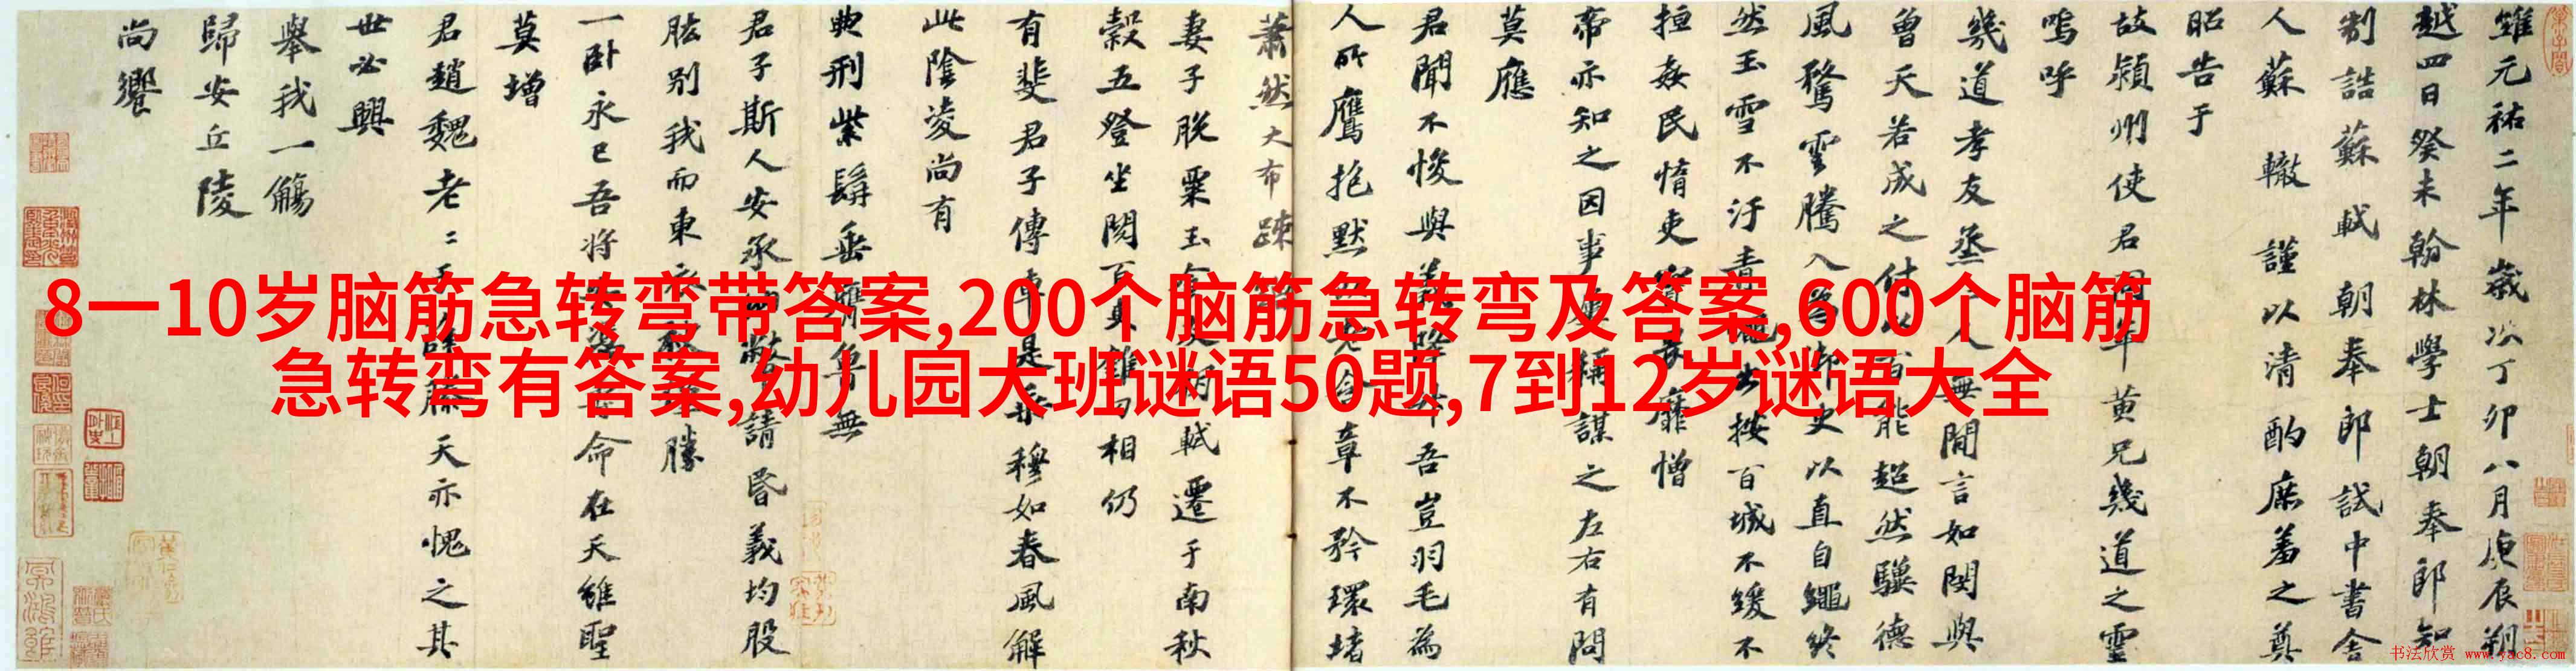 8一10岁脑筋急转弯带答案,200个脑筋急转弯及答案,600个脑筋
急转弯有答案,幼儿园大班谜语50题,7到12岁谜语大全
維元祐二年歲次丁卯八月庚辰朔
越四日癸未翰林學士朝奉郎知
制誥蘇軾朝奉郎試中書舍
人蘇轍謹以清酌庶羞之奠
昭告于
故潁州使君同年黃兄幾道之靈
嗚呼
幾道孝友烝烝人無間言如閔與
曾天若成之付以百能超然驥德
風騖雲騰入為御史以直自繩終
然玉雪不汙青蠅出按百城不緩不
搄姦民惰吏實畏靡憎
帝亦知之因事屢稱謀之左右有問
莫應
君聞不悛與義降升吾豈羽毛為
人所鷹抱默以老含章不矜環堵
蕭然大布疎繒
妻子脫粟玉食友朋軾遷于南秋
穀五登坐閱百吏錐刀相仍
有斐君子傳車是乘穆如春風解
此陰凌尚有
典刑紫髯垂膺魯無
君子斯人安承納幣請昏義均股
肱別我而東衣袂僅勝
一臥永已吾將安憑壽命在天雖聖
莫增
君趙魏老老于薛滕天亦愧之其
世必興
舉我一觴
歸安丘陵
尚饗
书法欣赏 www.yac8.com